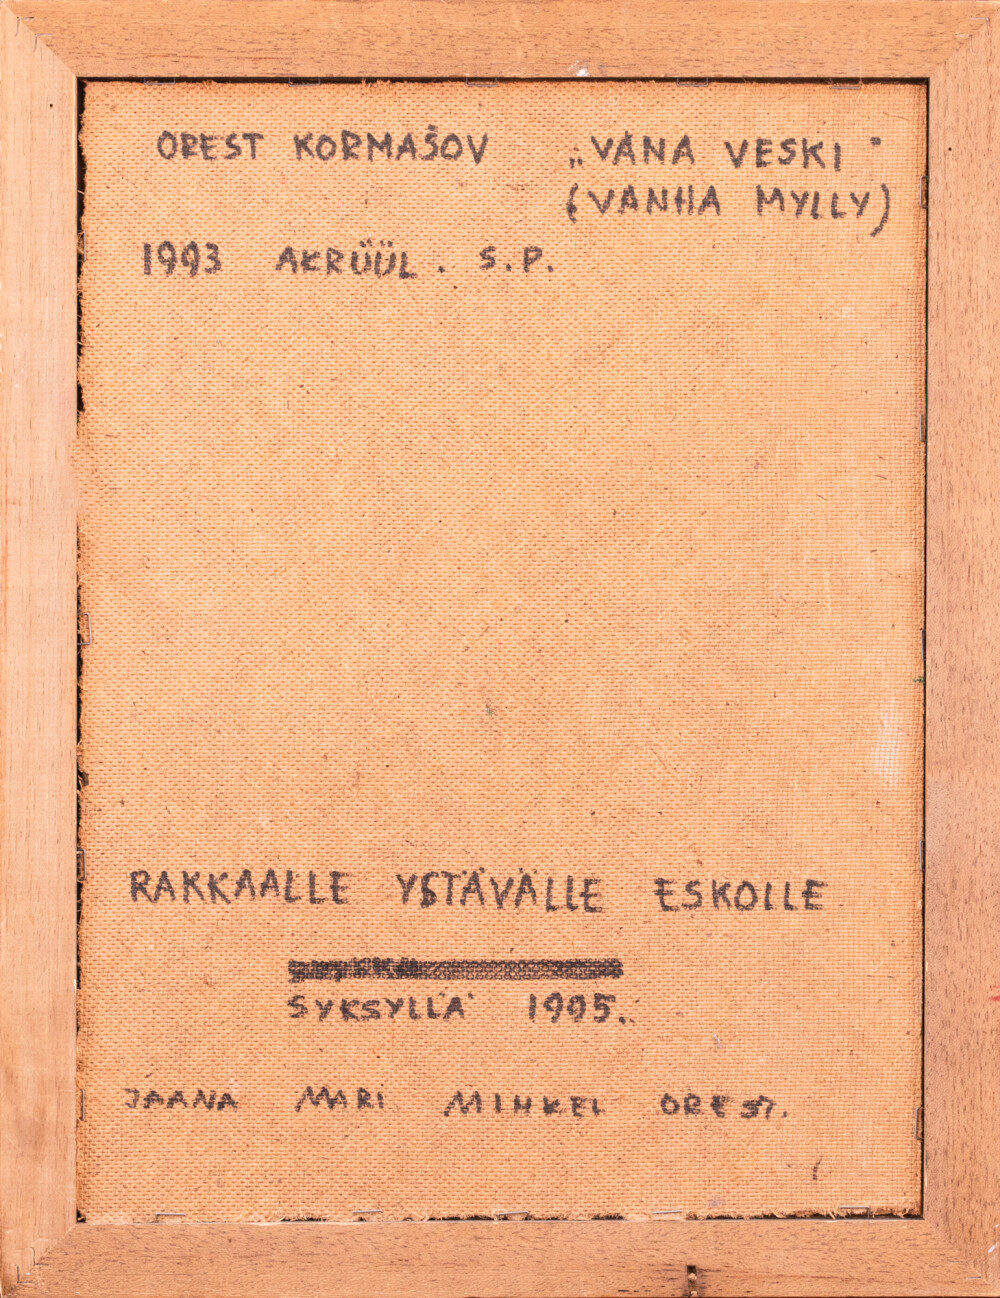 OREST KORMAŠOV „VANA VESKI"
(VANHA MYLLY)
1993 AKRÜÜL. S.P.
RAKKAALLE YSTÄVÄLLE ESKOLLE
SYKSYLLÄ 1995.
JAANA MARI MINKEL OREST.